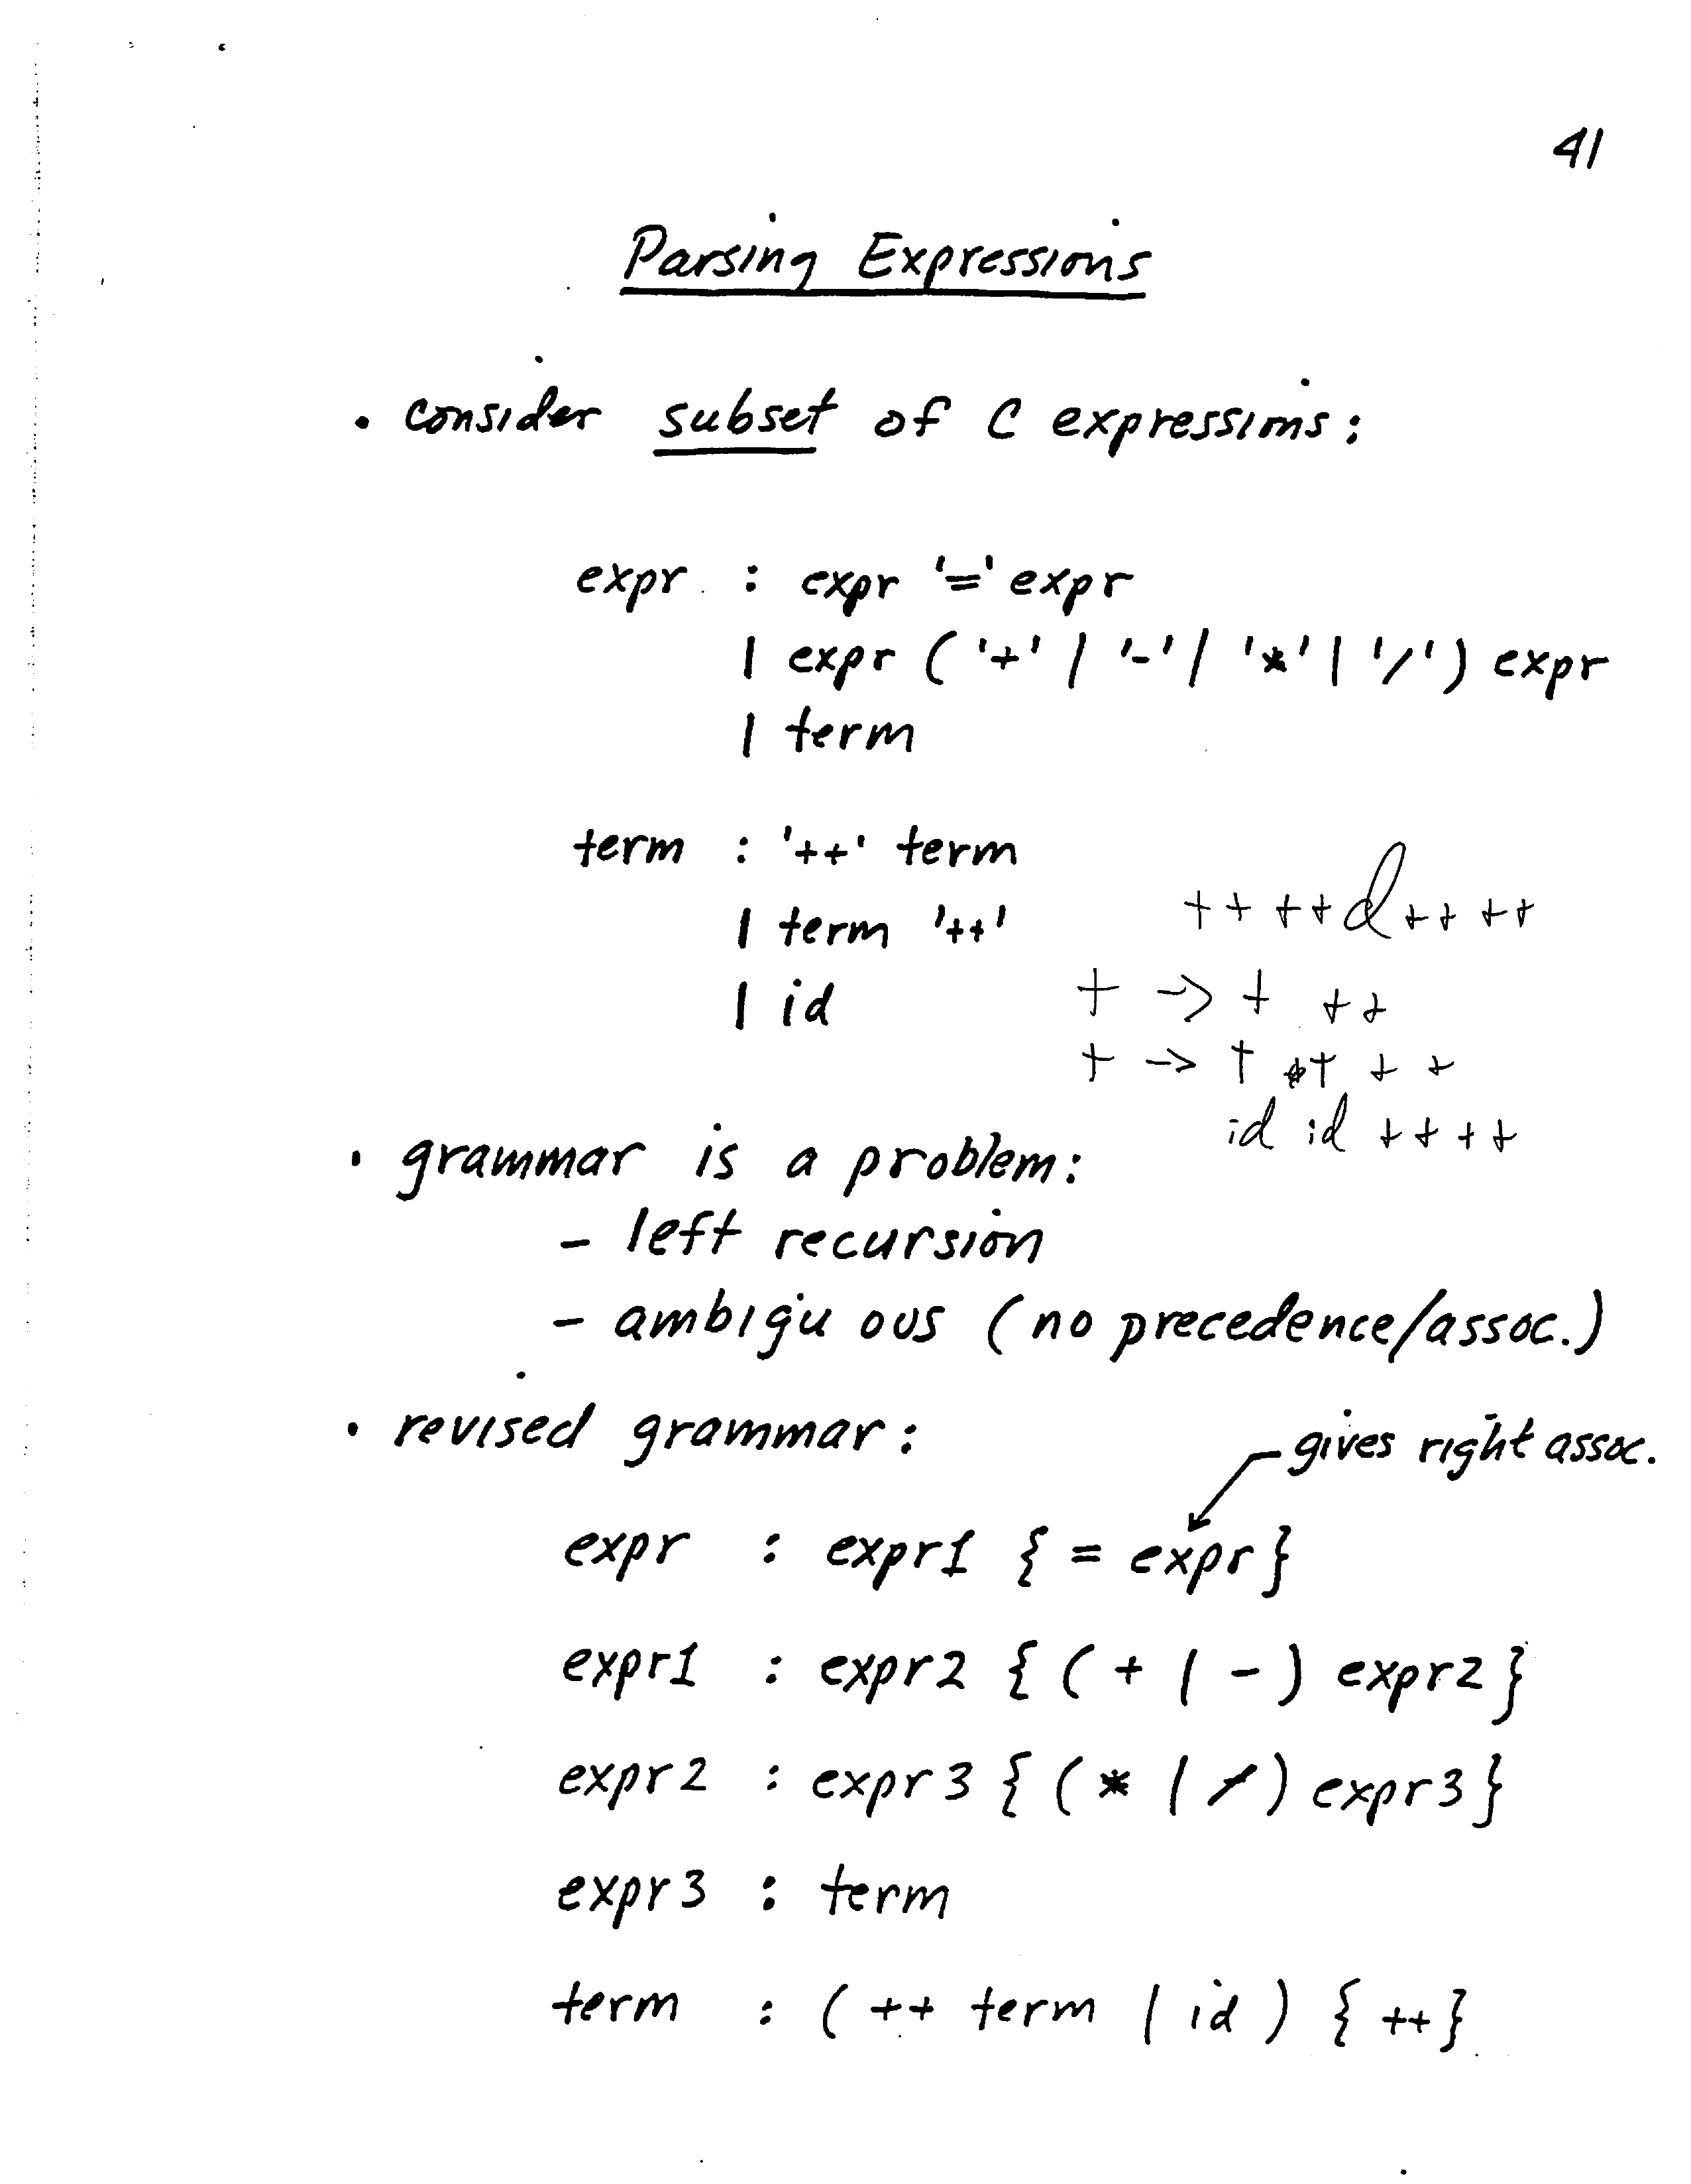 41
Parsing Expressions
· consider subset of C expressions:
expr : expr '=' expr
| expr ('+' | '-' | '*' | '/') expr
| term
term : '++' term
| term '++'
| id
++ ++d++ ++
t -> t ++
t -> t t + +
id id ++++
· grammar is a problem:
- left recursion
- ambigu ous (no precedence/assoc.)
· revised grammar:
gives right assoc.
expr : expr1 { = expr }
expr1 : expr2 { ( + | - ) expr2 }
expr2 : expr3 { ( * | / ) expr3 }
expr3 : term
term : ( ++ term | id ) { ++ }